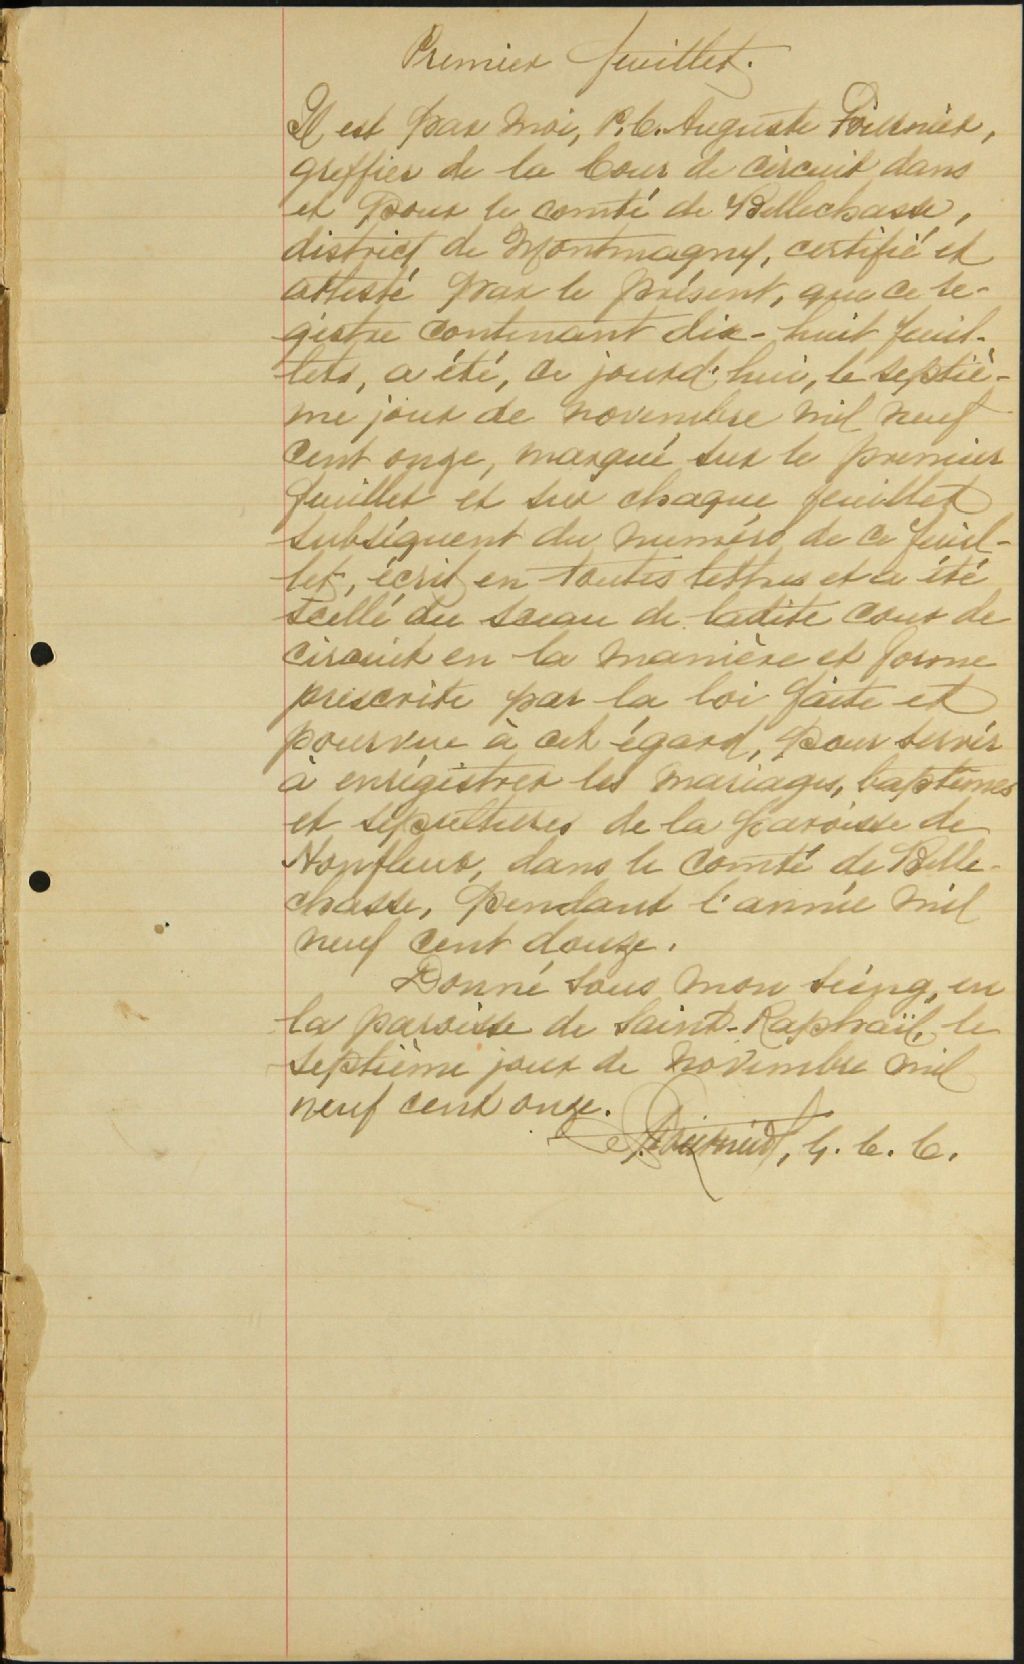 Premier feuillet.
Il est par moi, P. C. Auguste Fournier,
greffier de la Cour de circuit dans
et pour le comté de Bellechasse,
district de Montmagny, certifié et
attesté par le présent, que ce re-
gistre contenant dix-huit feuil-
lets, a été, ce jourd'hui, le septiè-
me jour de novembre mil neuf
cent onze, marqué sur le premier
feuillet et sur chaque feuillet
subséquent du numéro de ce feuil-
let, écrit en toutes lettres et a été
scellé du sceau de ladite cour de
circuit en la manière et forme
prescrite par la loi faite et
pourvue à cet égard, pour servir
à enrégistrer les mariages, baptêmes
et sépultures de la paroisse de
Honfleur, dans le comté de Belle-
chasse, pendant l'année mil
neuf cent douze.
Donné sous mon seing, en
la paroisse de Saint-Raphaïl, le
septième jour de novembre mil
neuf cent onze.
Fournier, G. C. C.